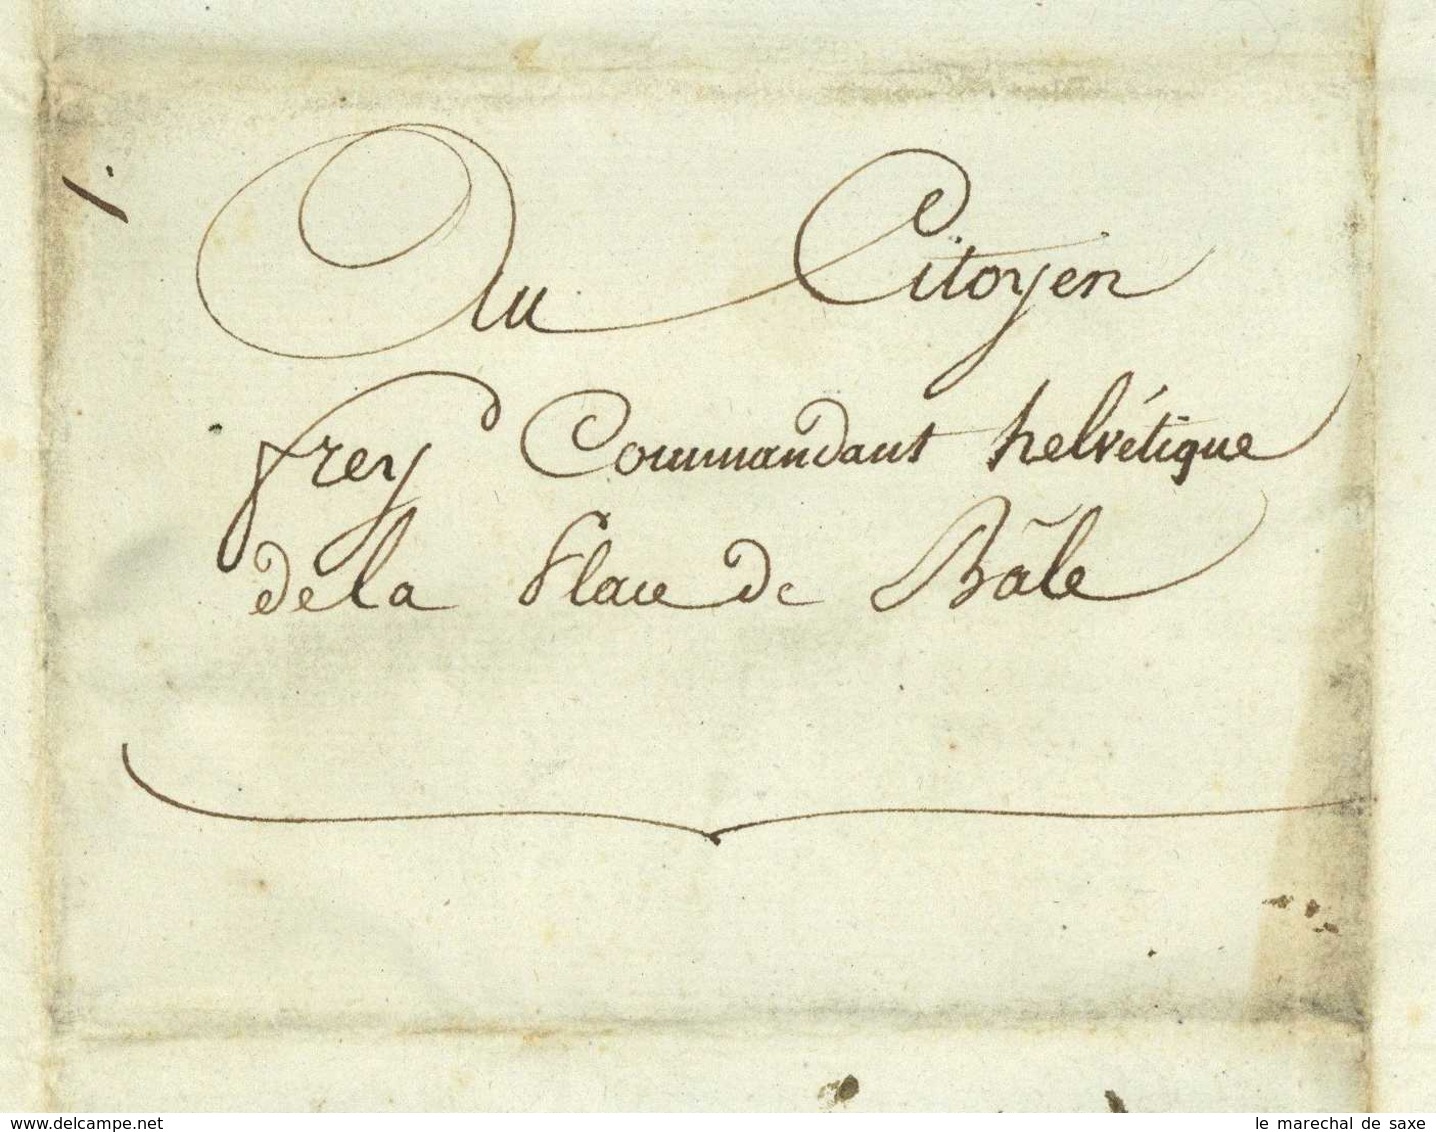 Au Citoyen
frey Commandant helvétique
de la Place de Bâle
www.delcampe.net
le marechal de saxe